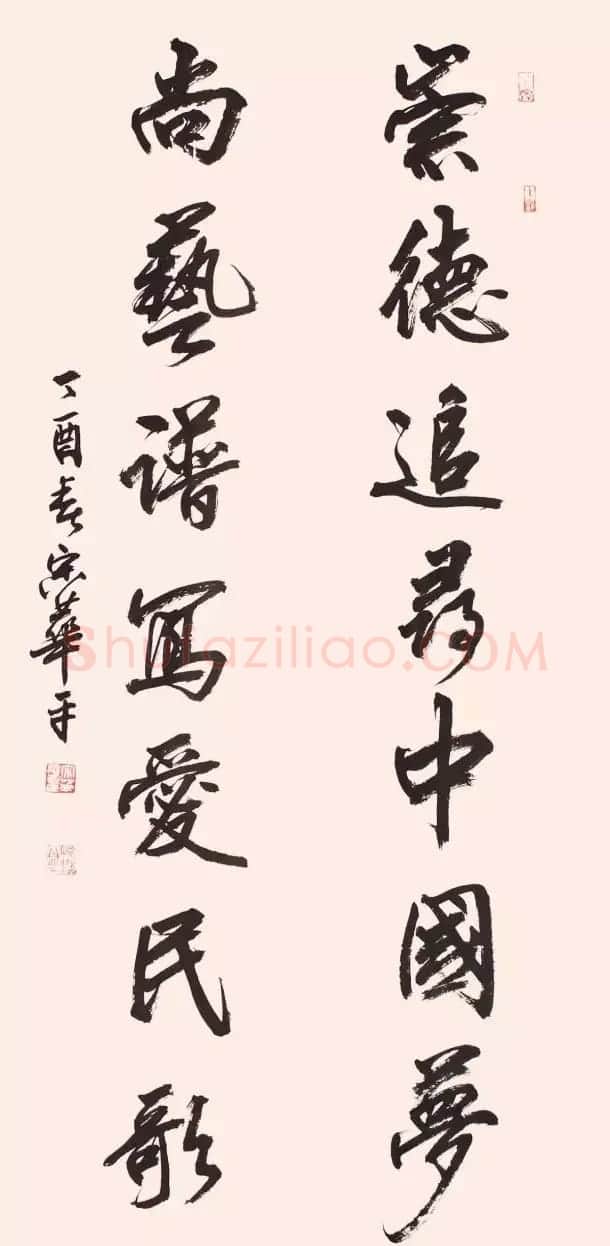 崇德追尋中國夢
尚藝譜寫愛民歌
丁酉春宋華平
Shufaziliao.COM